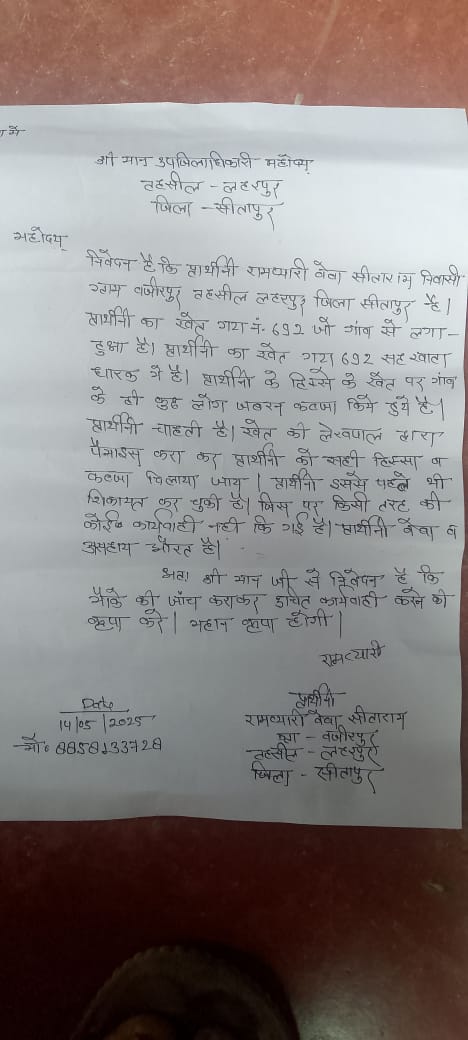 श्री मान उपजिलाधिकारी महोदय
तहसील - लहरपुर
जिला - सीतापुर
महोदय
निवेदन है कि प्रार्थीनी रामप्यारी बेवा सीताराम निवासी
ग्राम वजीरपुर तहसील लहरपुर जिला सीतापुर है।
प्रार्थीनी का खेत गाटा नं. 692 जो गांव से लगा-
हुआ है। प्रार्थीनी का खेत गाटा 692 सह खाता
धारक में है। प्रार्थीनी के हिस्से के खेत पर गांव
के ही कुछ लोग जबरन कब्जा किये हुये है।
प्रार्थीनी चाहती है। खेत की लेखपाल द्वारा
पैमाइस करा कर प्रार्थीनी को सही हिस्सा व
कब्जा दिलाया जाय। प्रार्थीनी इससे पहले भी
शिकायत कर चुकी है। जिस पर किसी तरह की
कोई कार्यवाही नही कि गई है। प्रार्थीनी बेवा व
असहाय औरत है।
अतः श्री मान जी से निवेदन है कि
मौके की जाँच कराकर उचित कार्यवाही करने की
कृपा करे। महान कृपा होगी।
रामप्यारी
प्रार्थीनी
रामप्यारी बेवा सीताराम
ग्रा - वजीरपुर
तहसील - लहरपुर
जिला - सीतापुर
Date
14/05/2025
मो॰ 8858133728